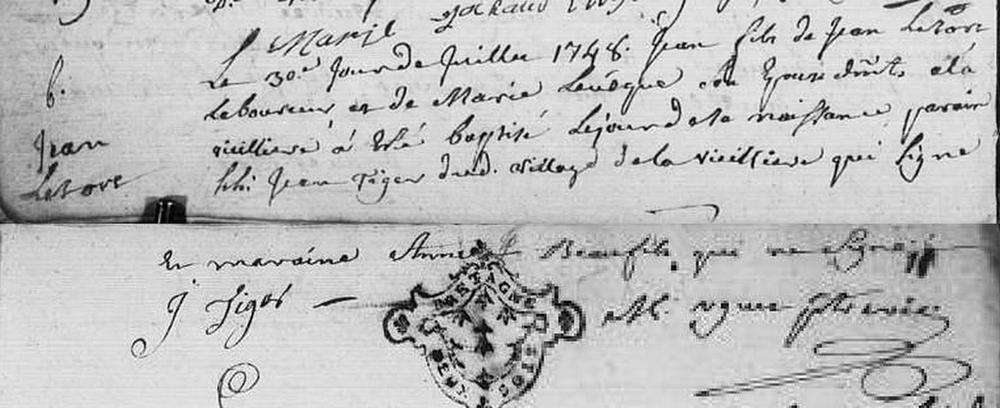 b.
Jean
Letort
Le 30e Jour de Juillet 1748. Jean fils de Jean Letort
Laboureur et de Marie Levêque son Epouse d.t à la
vieilliere a Eté baptisé Lejour de sa naissance parain
Jean Tiger dud. village de la vieilliere qui Signe
Et maraine Anne Beaufils, qui ne Signe
J Tiger
BRETAGNE